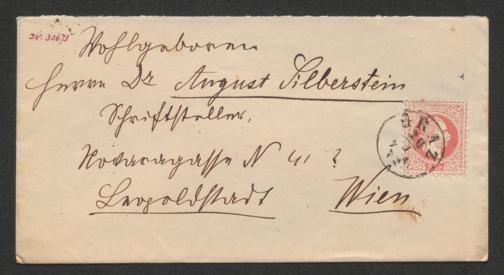 IN. 30673
Wohlgeboren
Herrn Dr August Silberstein
Schriftsteller,
Novaragasse N 41 ?
Leopoldstadt Wien
GRAZ